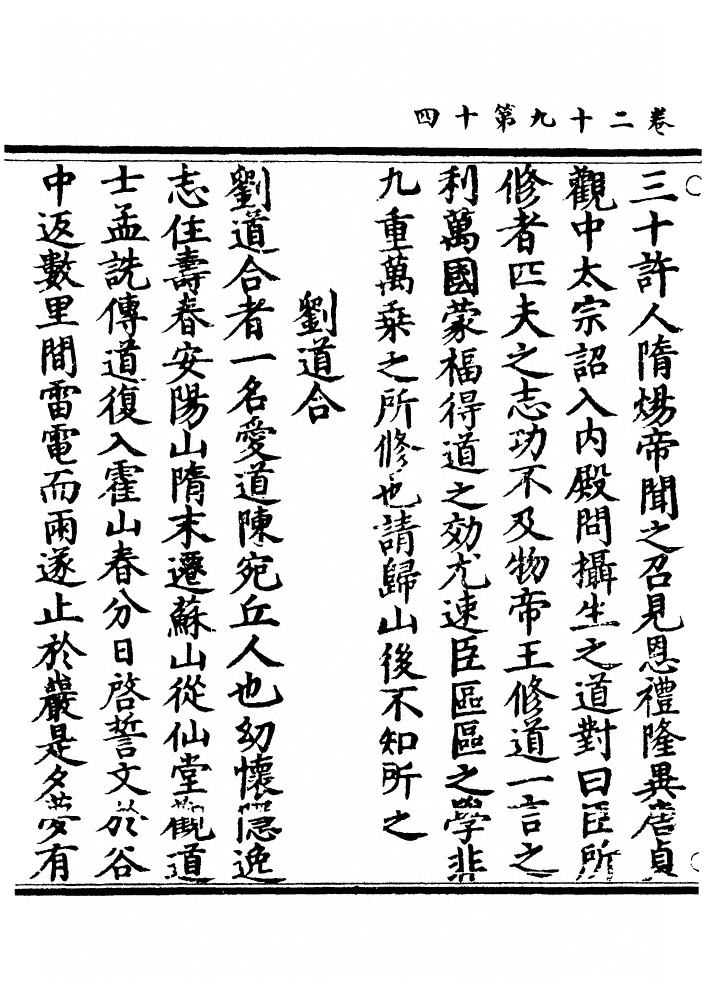 卷二十九第十四
三十許人隋煬帝聞之召見恩禮隆異唐貞
觀中太宗詔入內殿問攝生之道對曰臣所
修者匹夫之志功不及物帝王修道一言之
利萬國蒙福得道之効尤速臣區區之學非
九重萬乗之所修也請歸山後不知所之
劉道合
劉道合者一名愛道陳宛丘人也幼懷隱逸
志住壽春安陽山隋末遷蘇山從仙堂觀道
士孟詵傳道復入霍山春分日啓誓文於谷
中返數里間雷電而雨遂止於巖是夕夢有